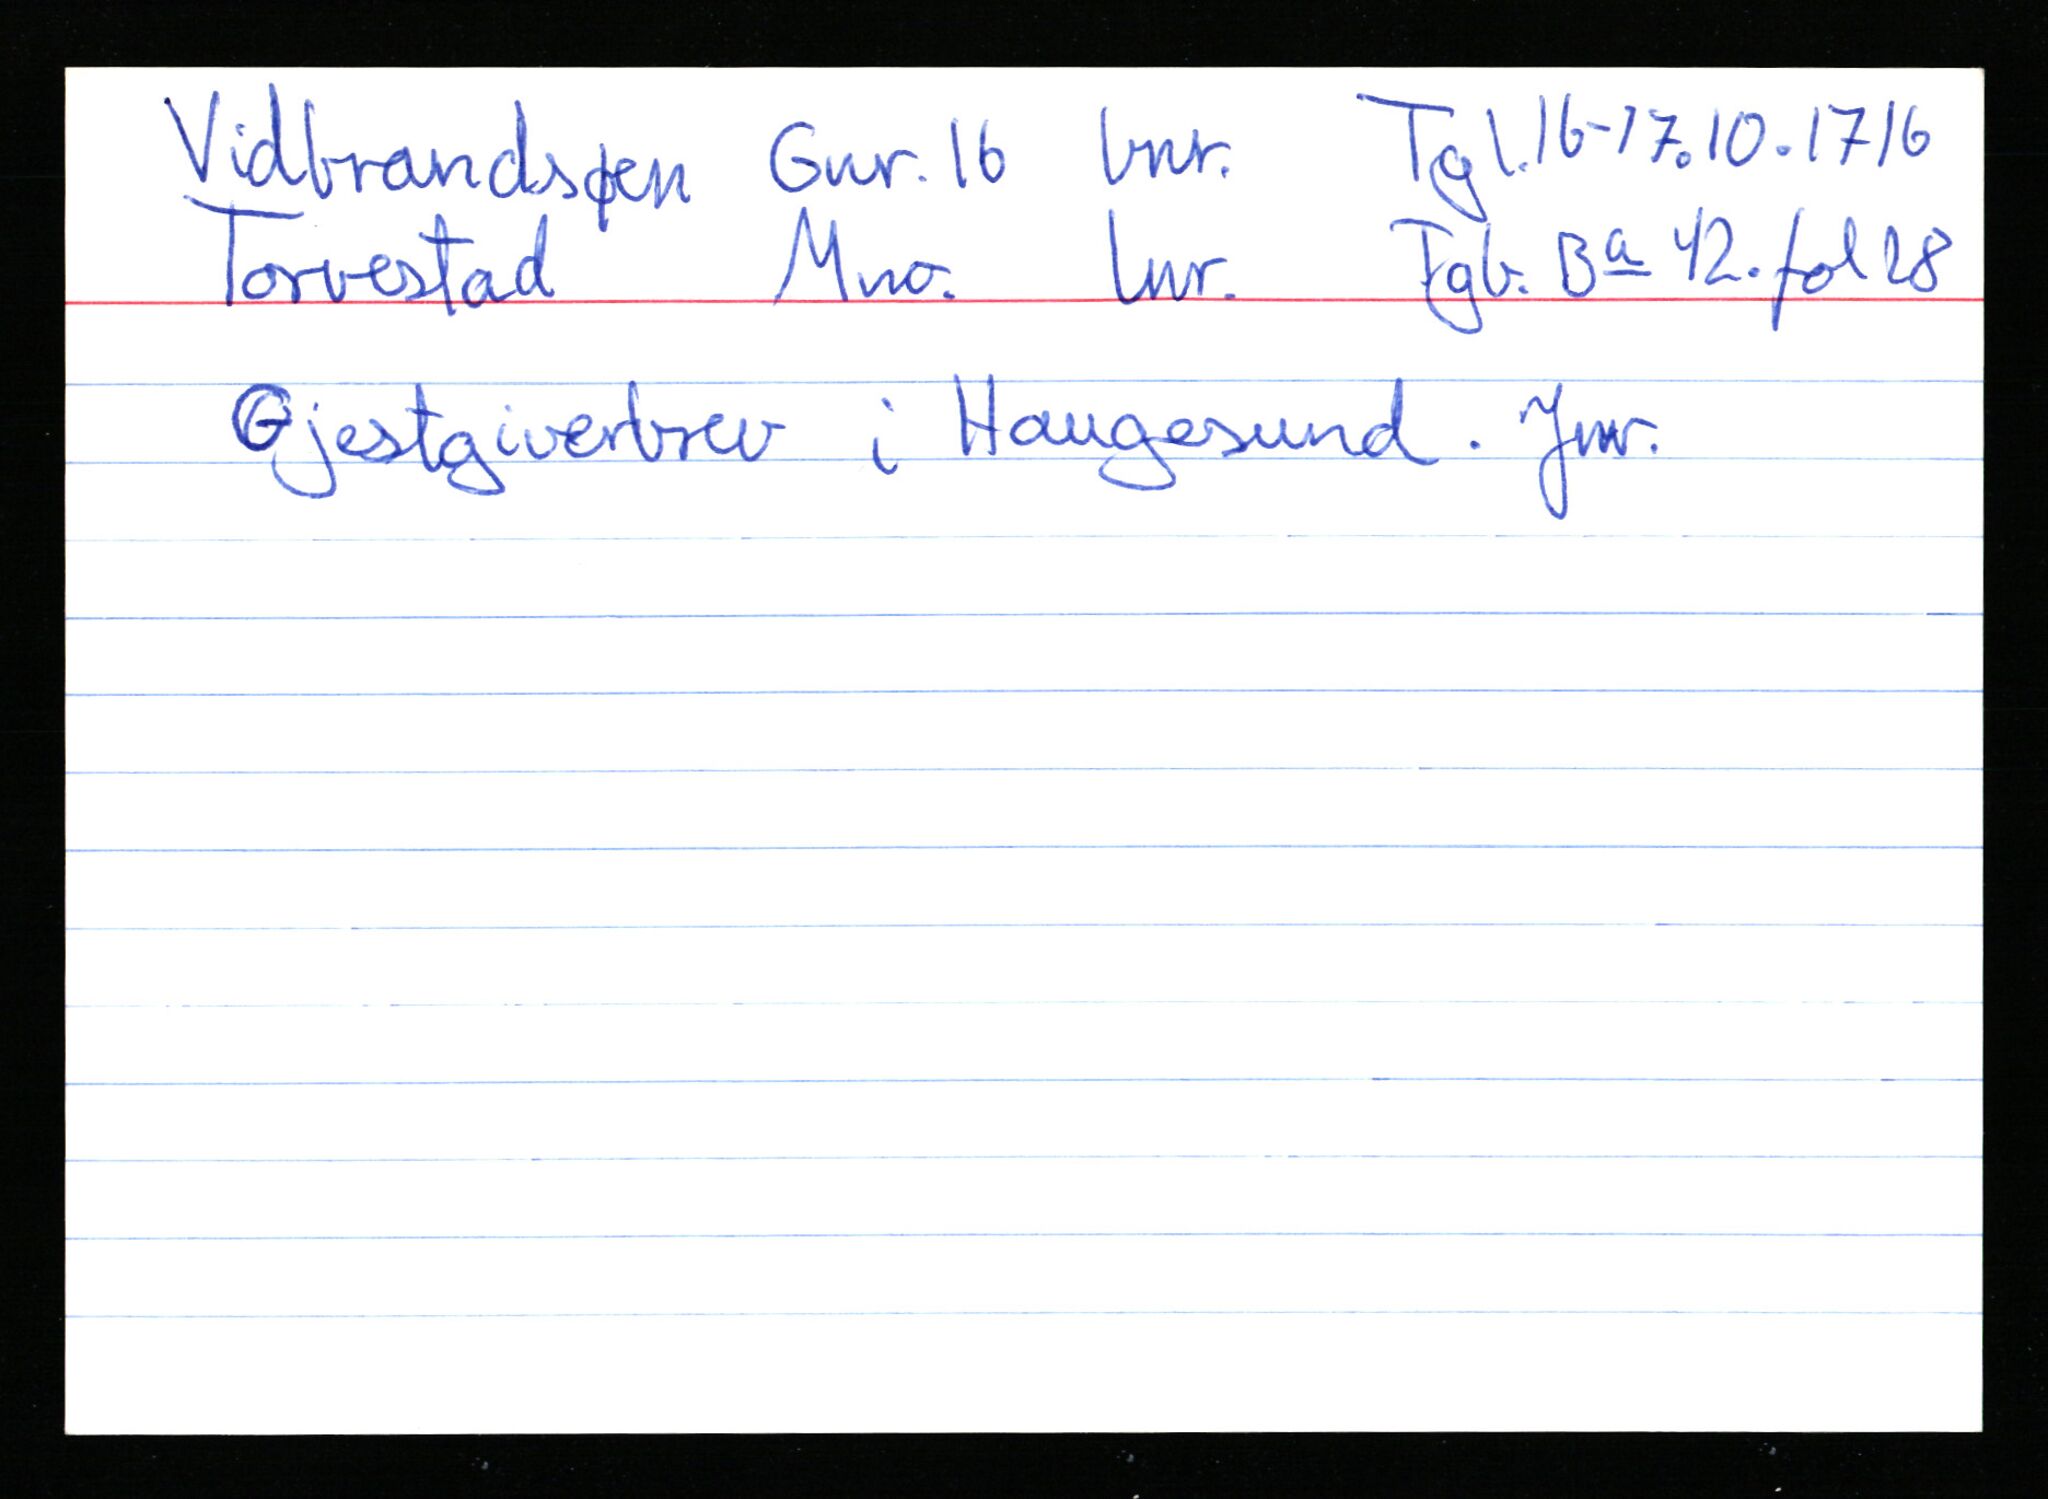 Vidbrandsøen Gnr. 16 bnr. Tgl. 16-17.10.1716
Torvestad Mno. lnr. Tgb. Ba 42. fol 28
Gjestgiverbrev i Haugesund.